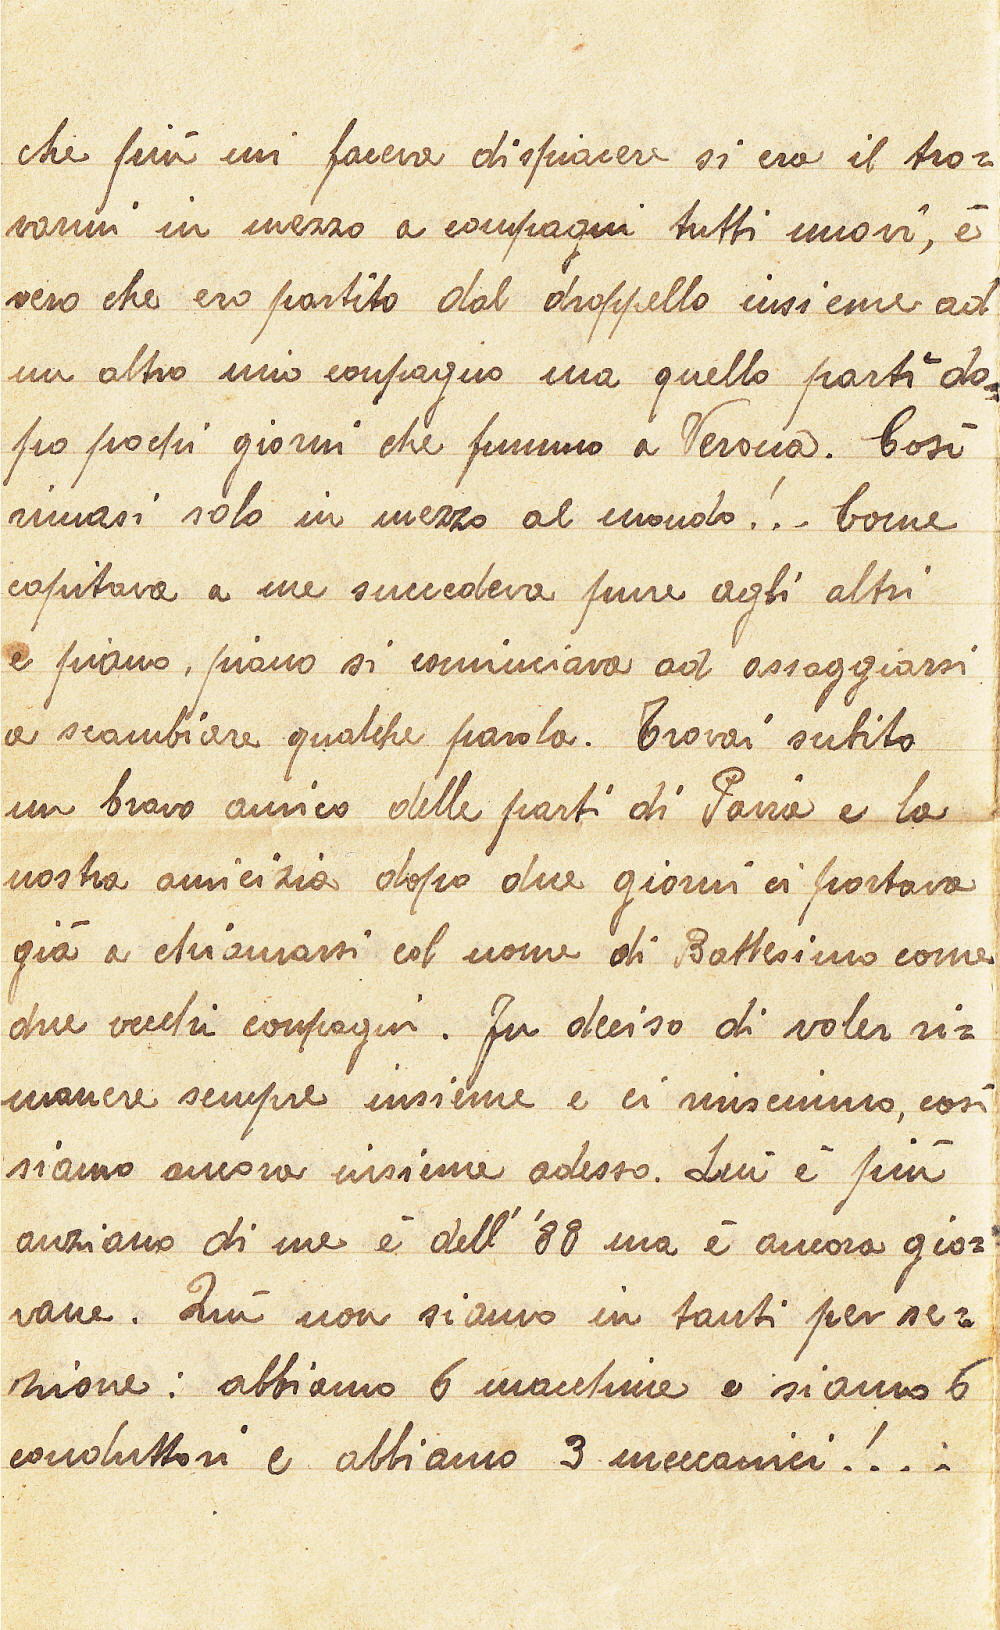 che più mi faceva dispiacere si era il tro=
varmi in mezzo a compagni tutti nuovi, è
vero che ero partito dal droppello insieme ad
un altro mio compagno ma quello partì do=
po pochi giorni che fummo a Verona. Così
rimasi solo in mezzo al mondo!.. Come
capitava a me succedeva pure agli altri
e piano, piano si cominciava ad assaggiarsi
a scambiare qualche parola. Trovai subito
un bravo amico delle parti di Pavia e la
nostra amicizia dopo due giorni ci portava
già a chiamarsi col nome di Battesimo come
due vecchi compagni. Fu deciso di voler ri=
manere sempre insieme e ci riuscimmo, così
siamo ancora insieme adesso. Lui è più
anziano di me è dell' '88 ma è ancora gio=
vane. Qui non siamo in tanti per se=
zione: abbiamo 6 macchine e siamo 6
conduttori e abbiamo 3 meccanici!...